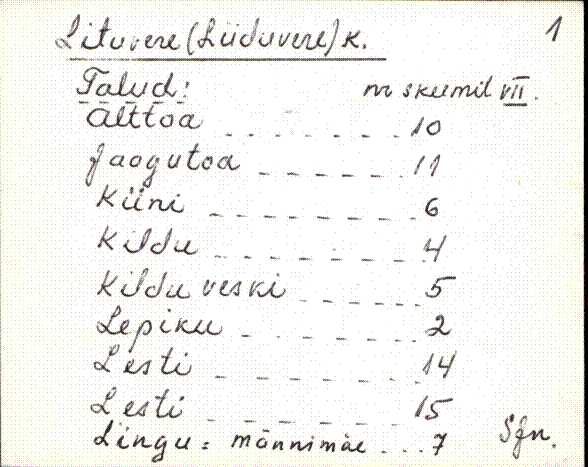 Lituvere (Liiduvere) k. 1
Talud: nr skeemil VII.
Alttoa ------ 10
Jaagutoa ----- 11
Kiini ------ 6
Kildu ------ 4
Kildu veski ---- 5
Lepiku ------ 2
Lesti ------ 14
Lesti ------ 15
Lingu = männimäe ... 7